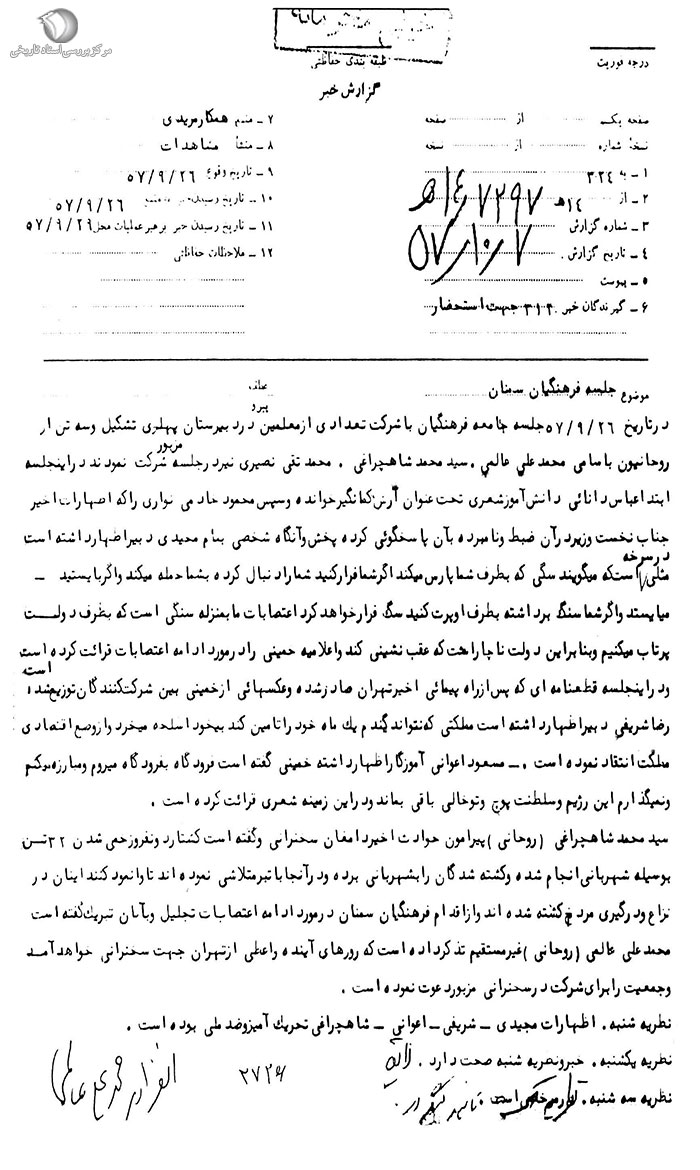 مرکز بررسی اسناد تاریخی
طبقه بندی حفاظتی
درجه فوریت
گزارش خبر
صفحه یک از صفحه
نسخهٔ شماره از نسخه
۱ ـ به ۳۲۴
۲ ـ از ۱۴هـ
۳ ـ شماره گزارش ۷۲۹۷/۱۴هـ
۴ ـ تاریخ گزارش ۵۷/۱۰/۷
۵ ـ پیوست
۶ ـ گیرندگان خبر ۳۱۲ جهت استحضار
۷ ـ منبع همکار مریدی
۸ ـ منشأ مشاهدات
۹ ـ تاریخ وقوع ۵۷/۹/۲۶
۱۰ ـ تاریخ رسیدن خبر به منبع ۵۷/۹/۲۶
۱۱ ـ تاریخ رسیدن خبر برهبر عملیات محل ۵۷/۹/۲۹
۱۲ ـ ملاحظات حفاظتی
موضوع جلسه فرهنگیان سمنان
عطف
پیرو
در تاریخ ۵۷/۹/۲۶ جلسه جامعه فرهنگیان با شرکت تعدادی از معلمین در دبیرستان پهلوی تشکیل و سه تن از
روحانیون باسامی محمدعلی عالمی . سید محمد شاهچراغی . محمد تقی نصیری نیز در جلسه مزبور شرکت نمودند در اینجلسه
ابتدا عباس دانائی دانش آموز شعری تحت عنوان آرش کمانگیر خوانده و سپس محمود خادمی نواری را که اظهارات اخیر
جناب نخست وزیر در آن ضبط و نامبرده بآن پاسخگوئی کرده پخش و آنگاه شخصی بنام مجیدی دبیر اظهار داشته است
مثلی در سرخه است که میگویند سگی که بطرف شما پارس میکند اگر شما فرار کنید شما را دنبال کرده بشما حمله میکند و اگر بایستید ـ
میایستد و اگر شما سنگ برداشته بطرف او پرت کنید سگ فرار خواهد کرد اعتصابات ما بمنزله سنگی است که بطرف دولت
پرتاب میکنیم و بنابراین دولت ناچار است که عقب نشینی کند و اعلامیه خمینی را در مورد ادامه اعتصابات قرائت کرده است
و در اینجلسه قطعنامه ای که پس از راه پیمائی اخیر تهران صادر شده و عکسهائی از خمینی بین شرکت کنندگان توزیع شده است
رضا شریفی دبیر اظهار داشته است مملکتی که نتواند گندم یک ماه خود را تامین کند بیخود اسلحه میخرد و از وضع اقتصادی
مملکت انتقاد نموده است . ـ مسعود اعوانی آموزگار اظهار داشته خمینی گفته است فرودگاه بفرودگاه میروم و مبارزه میکنم
و نمیگذارم این رژیم و سلطنت پوچ و توخالی باقی بماند و در این زمینه شعری قرائت کرده است .
سید محمد شاهچراغی (روحانی) پیرامون حوادث اخیر دامغان سخنرانی و گفته است کشتار دو نفر و زخمی شدن ۳۲ تن
بوسیله شهربانی انجام شده و کشته شدگان را بشهربانی برده و در آنجا با تبر متلاشی نموده اند تا وانمود کنند اینان در
نزاع و درگیری مردم کشته شده اند و از اقدام فرهنگیان سمنان در مورد ادامه اعتصابات تجلیل و بآنان تبریک گفته است
محمدعلی عالمی (روحانی) غیر مستقیم تذکر داده است که روزهای آینده واعظی از تهران جهت سخنرانی خواهد آمد
و جمعیت را برای شرکت در سخنرانی مزبور دعوت نموده است .
نظریه شنبه . اظهارات مجیدی ـ شریفی ـ اعوانی ـ شاهچراغی تحریک آمیز و ضد ملی بوده است .
نظریه یکشنبه . خبر و نظریه شنبه صحت دارد .
نظریه سه شنبه .
۲۷۳۶